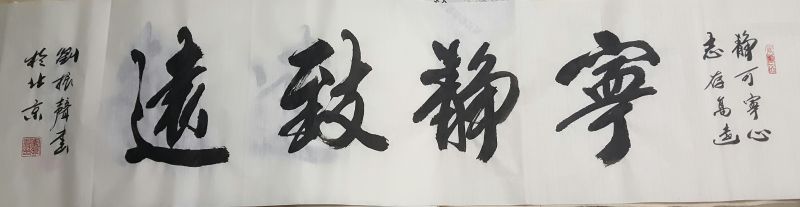 靜可寧心
志存高遠
寧靜致遠
劉振聲書
於北京